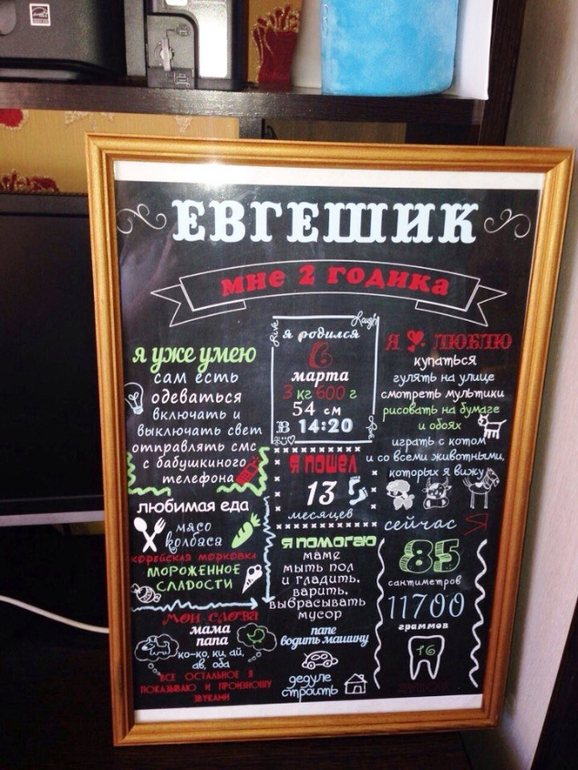 ЕВГЕШИК
мне 2 годика
я уже умею
сам есть
одеваться
включать и
выключать свет
отправлять смс
с бабушкиного
телефона
любимая еда
мясо
колбаса
корейская морковка
мороженное
сладости
мои слова
мама
папа
ко-ко, ки, ай,
ав, оба
все остальное я
показываю и произношу
звуками
Live
Laugh
я родился
6
марта
3 кг 600 г
54 см
в 14:20
я пошел
13
месяцев
я помогаю
маме
мыть пол
и гладить,
варить,
выбрасывать
мусор
папе
водить машину
дедуле
строить
Я люблю
купаться
гулять на улице
смотреть мультики
рисовать на бумаге
и обоях
играть с котом
и со всеми животными,
которых я вижу
сейчас я
85
сантиметров
11700
граммов
16